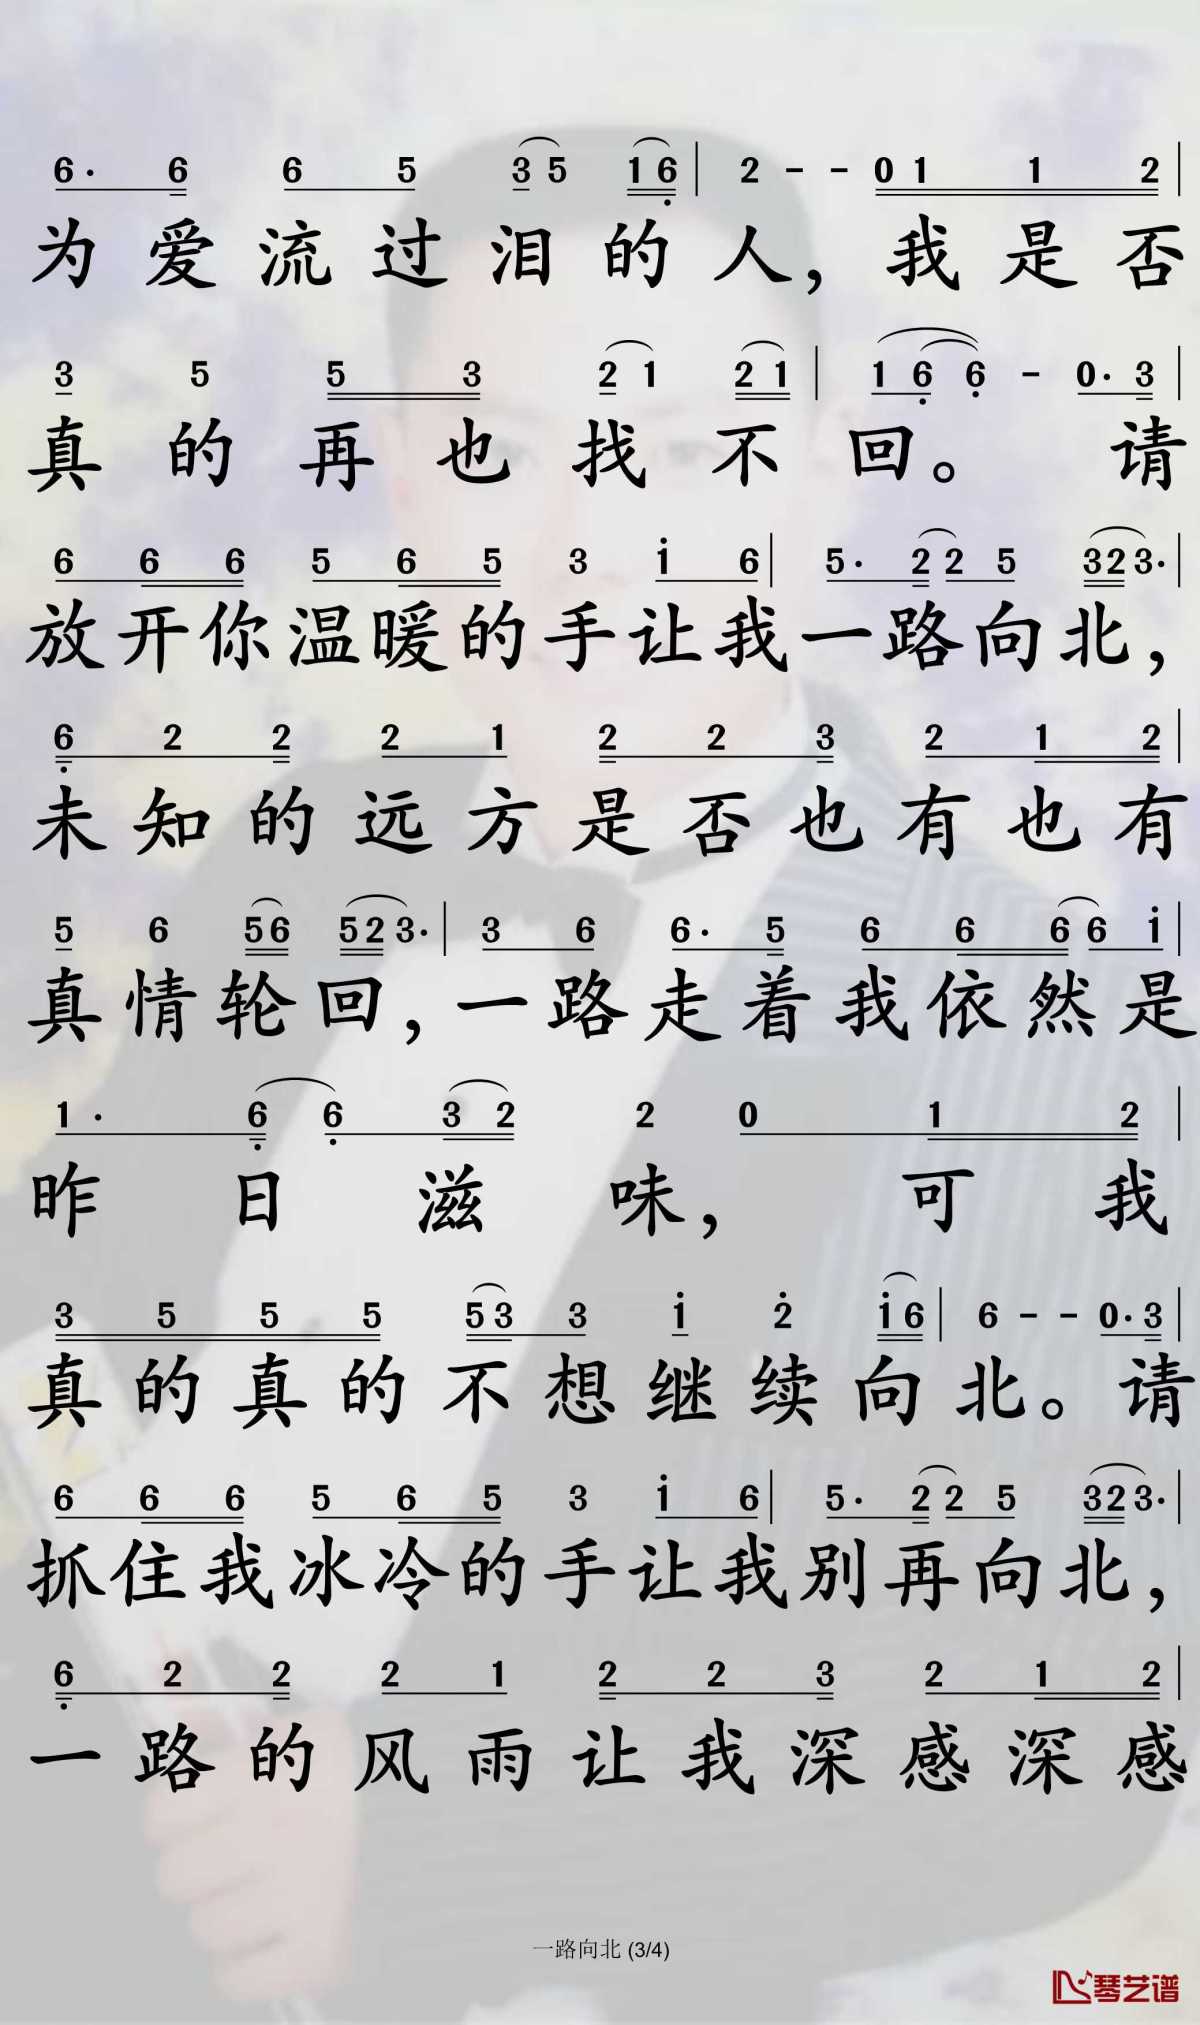 6· 6 6 5 3 5 1 6 | 2 - - 0 1 1 2 |
为爱流过泪的人，我是否
3 5 5 3 2 1 2 1 | 1 6 6 - 0· 3 |
真的再也找不回。请
6 6 6 5 6 5 3 1 6 | 5· 2 2 5 3 2 3· |
放开你温暖的手让我一路向北，
6 2 2 2 1 2 2 3 2 1 2 |
未知的远方是否也有也有
5 6 5 6 5 2 3· | 3 6 6· 5 6 6 6 6 1 |
真情轮回，一路走着我依然是
1· 6 6 3 2 2 0 1 2 |
昨日滋味，可我
3 5 5 5 5 3 3 1 2 1 6 | 6 - - 0· 3 |
真的真的不想继续向北。请
6 6 6 5 6 5 3 1 6 | 5· 2 2 5 3 2 3· |
抓住我冰冷的手让我别再向北，
6 2 2 2 1 2 2 3 2 1 2 |
一路的风雨让我深感深感
一路向北 (3/4)
琴艺谱